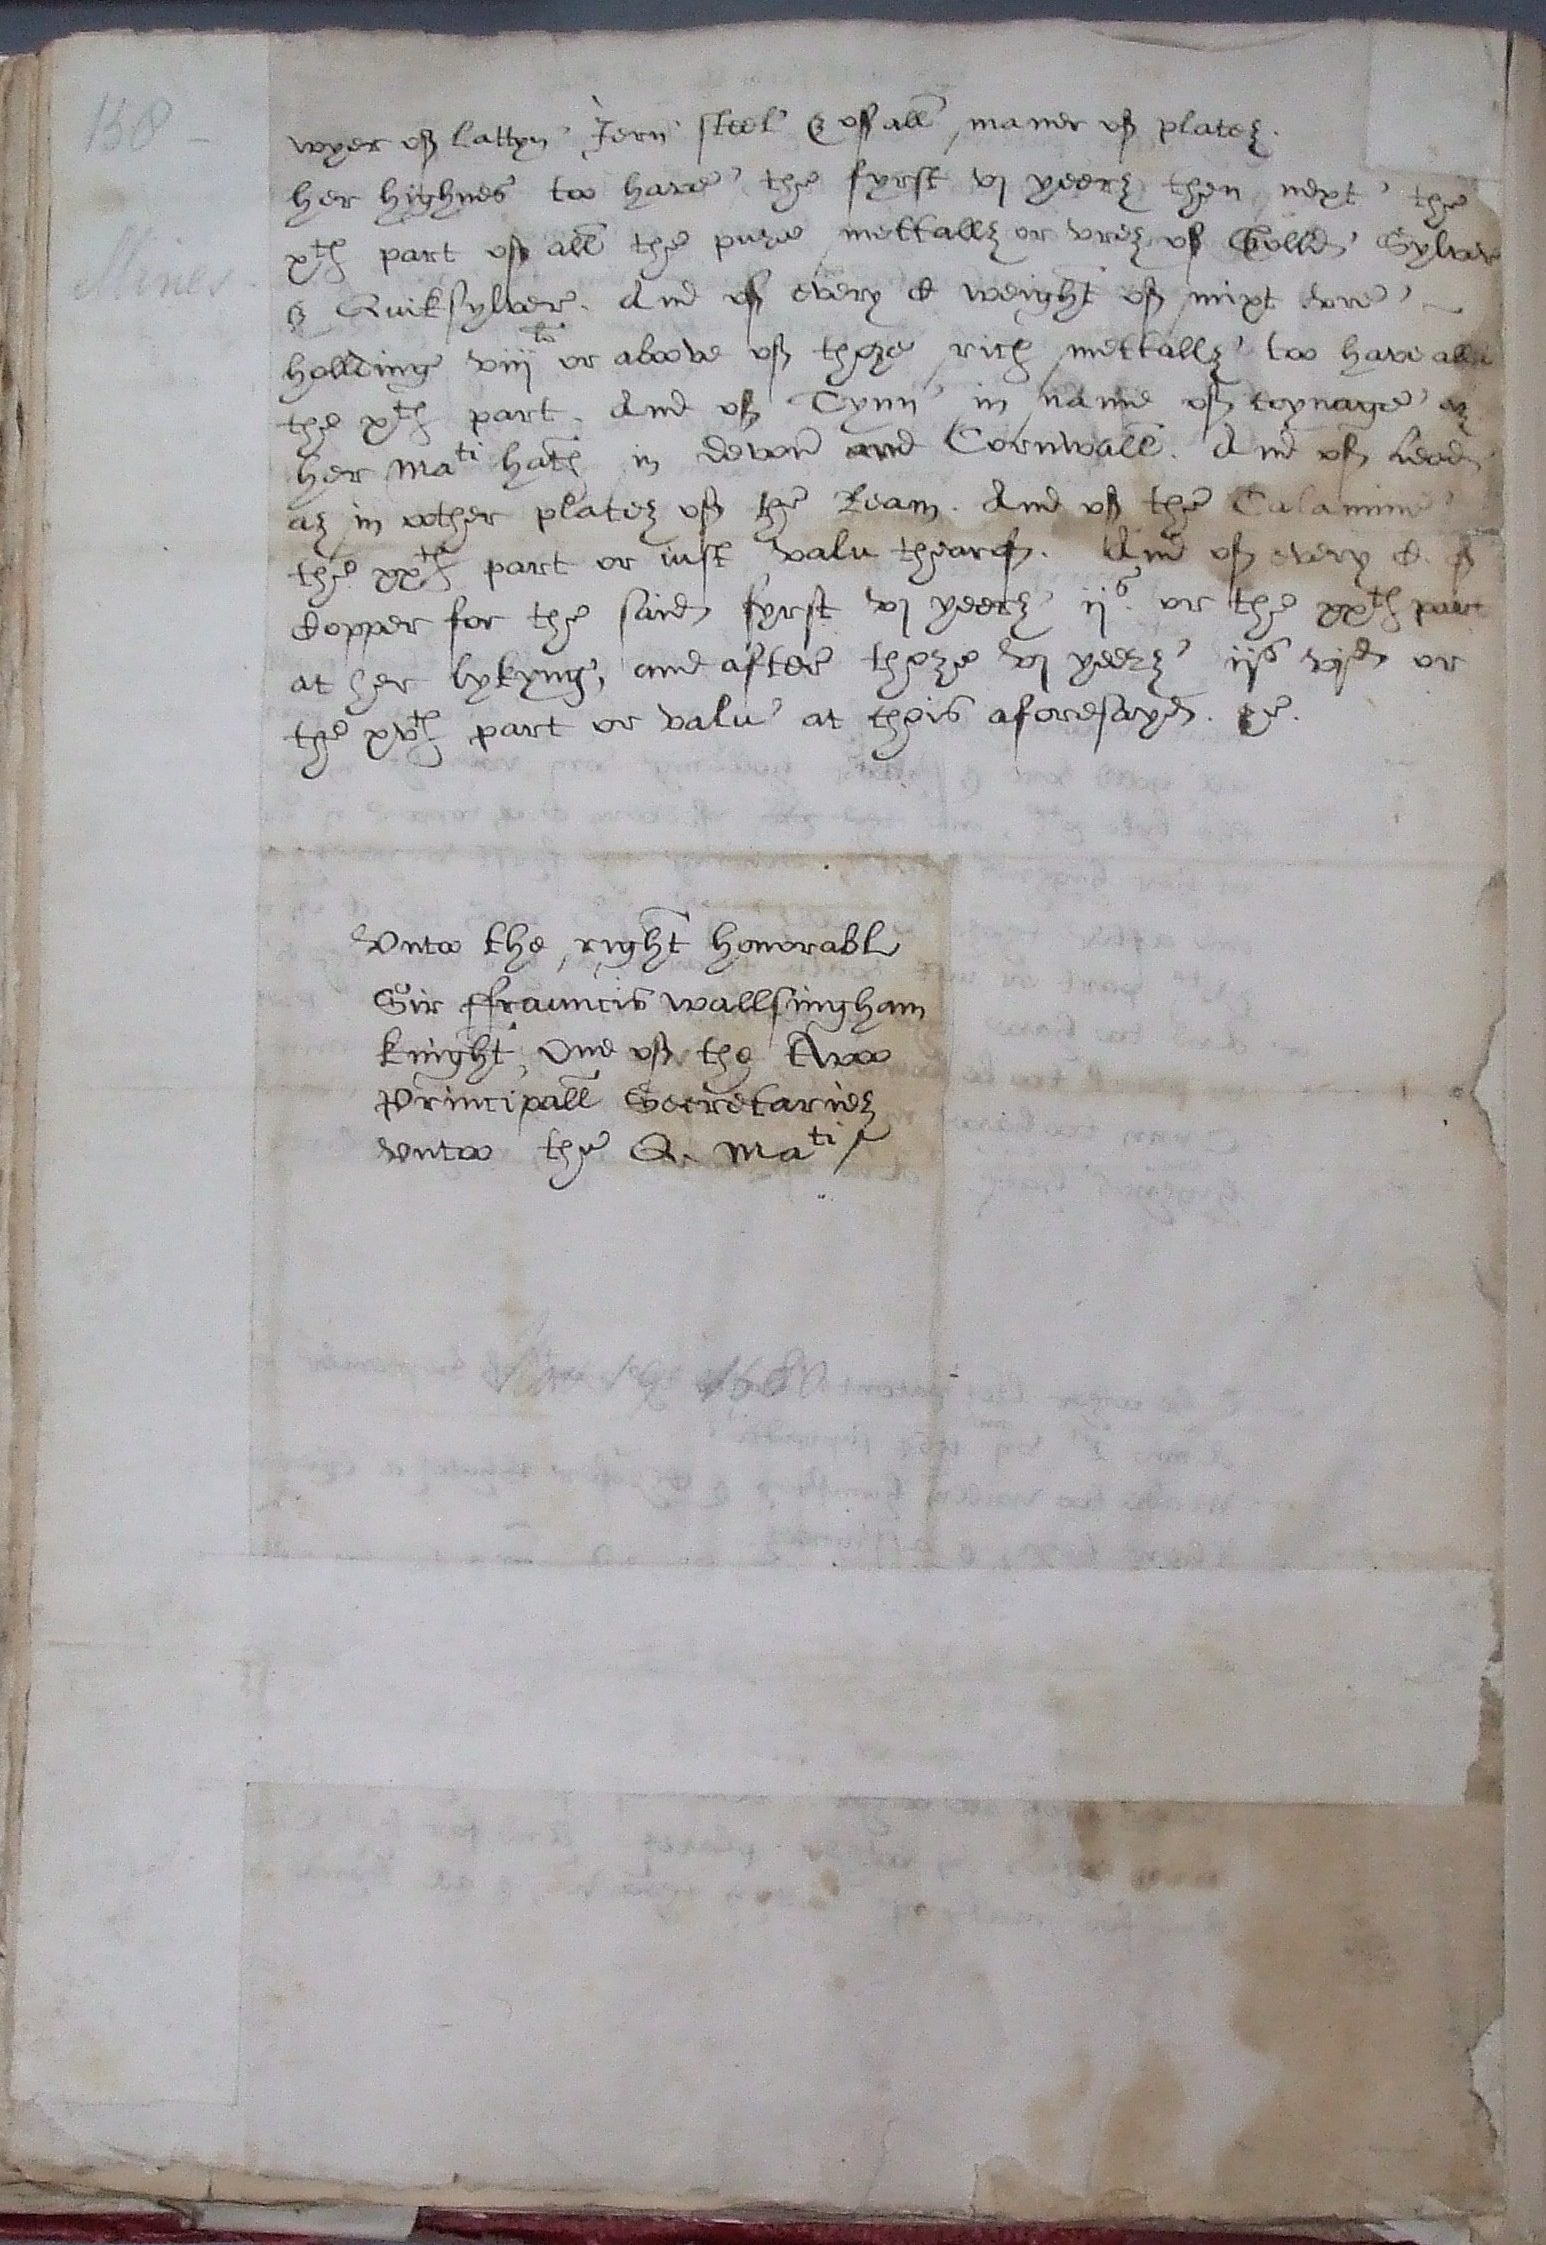 158 -
Mines.
wyer of lattyn Iern steel & of all maner of platez.
her highnes too have the fyrst vj yeerz then next the
xth part of all the puze mettallz or vrez of Golld Sylver
& Quiksylver. And of every C weight of mixt vre
hollding viijli or aboove of thoze rich mettallz too have allso
the xth part. And of Tynn in name of coynage az
her Mati hath in Devon and Cornwall. And of Leed
az in oother placez of the Ream. And of the Calamine
the xxth part or iust valu thearof. And of every C. of
Copper for the said fyrst vj yeerz ijs. or the xxth part
at her lykyng, and after thoze vj yeerz ijs vjd or
the xvth part or valu at thois aforesayd. &c.
Vntoo the right honorabl
Sir ffrauncis wallsingham
knight, One of the twoo
Principall Secretariez
vntoo the Q. Mati
1580